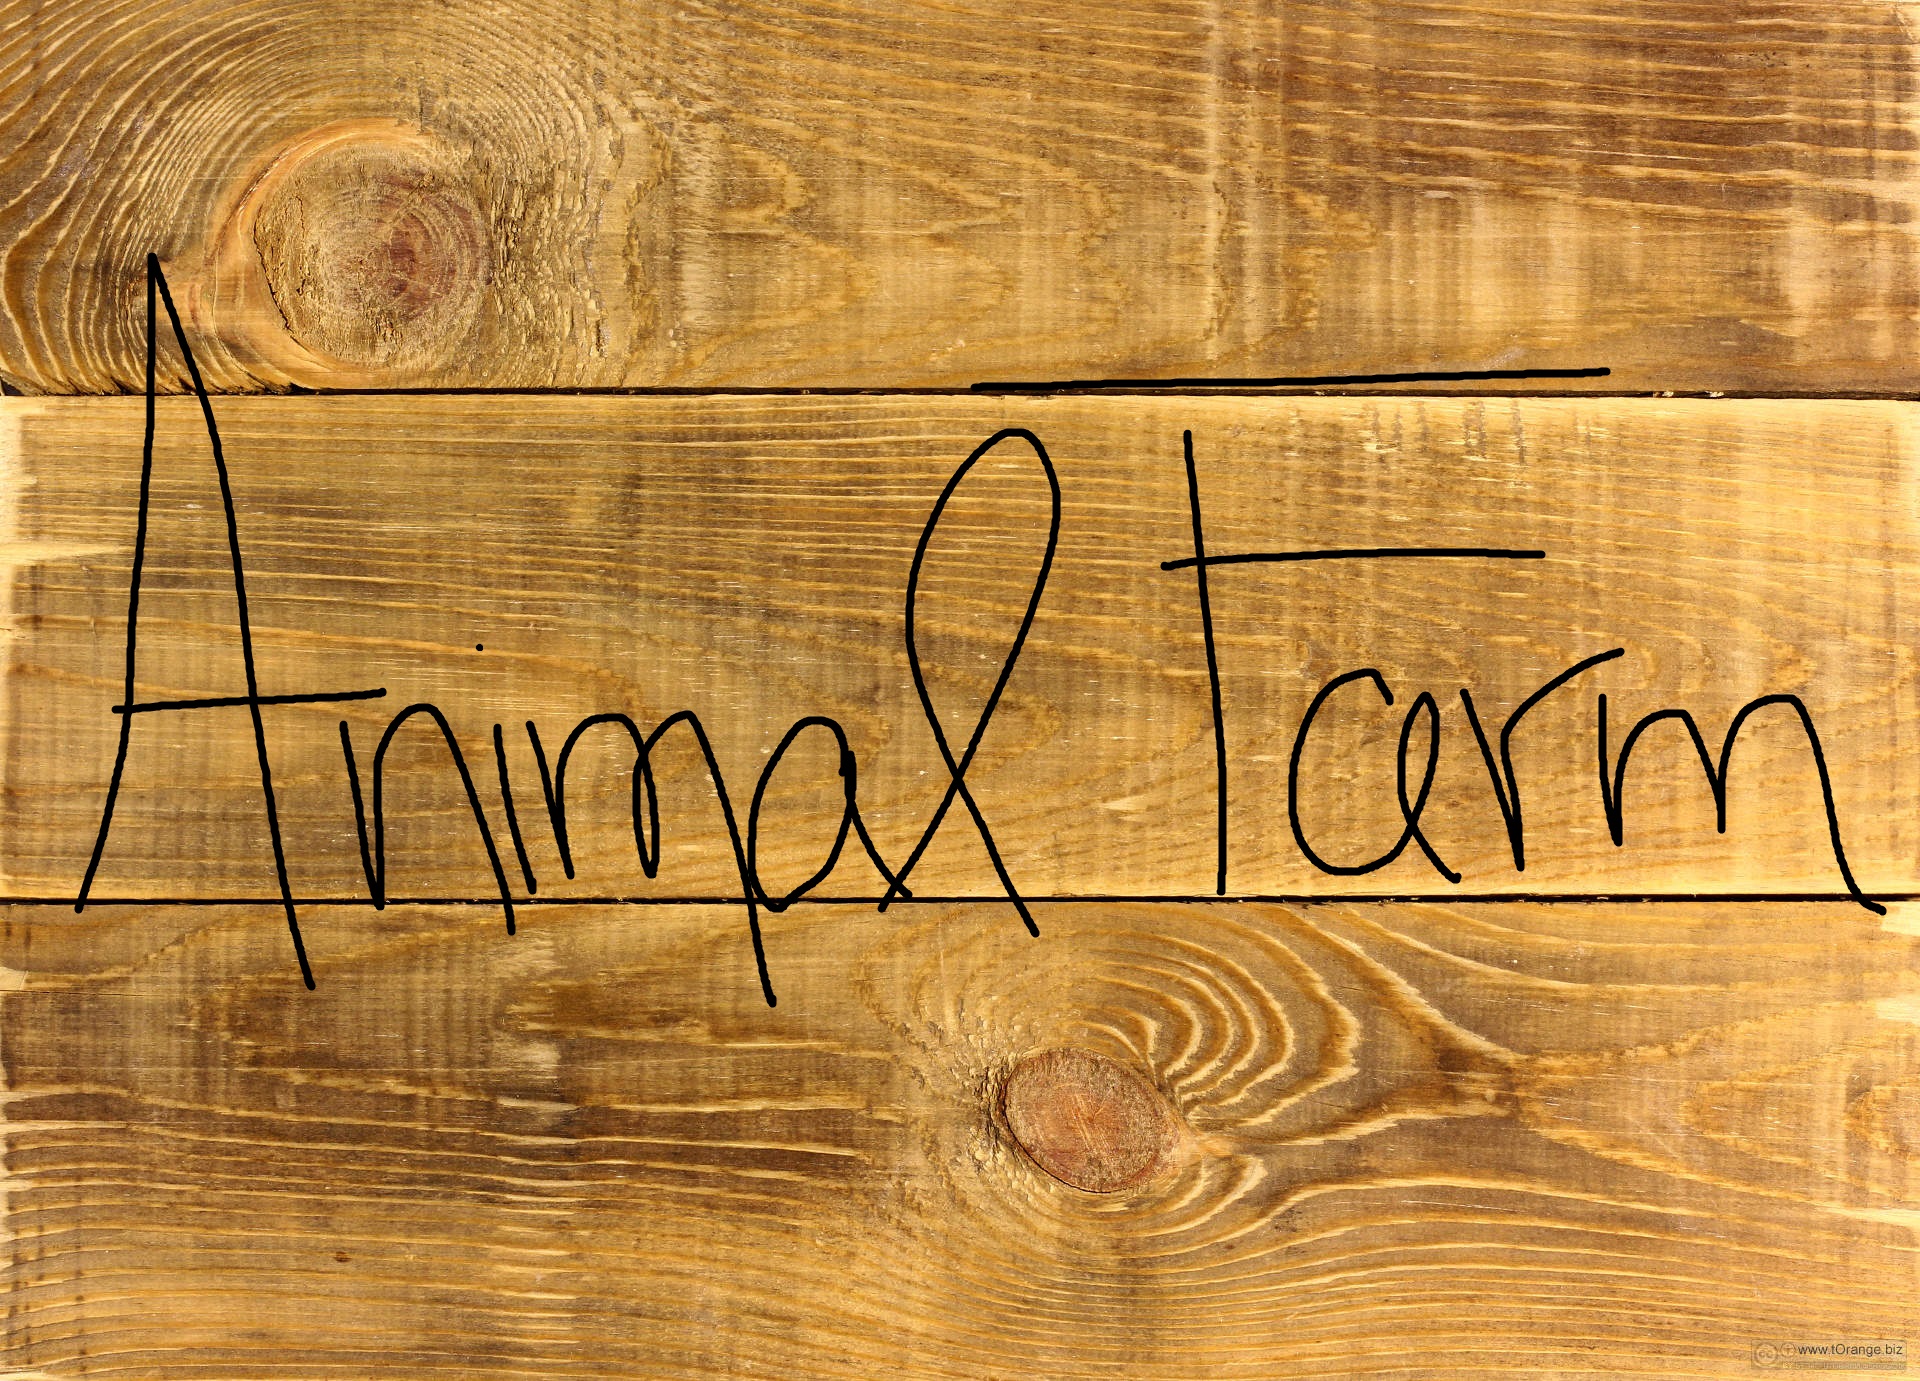 Animal Farm
www.tOrange.biz